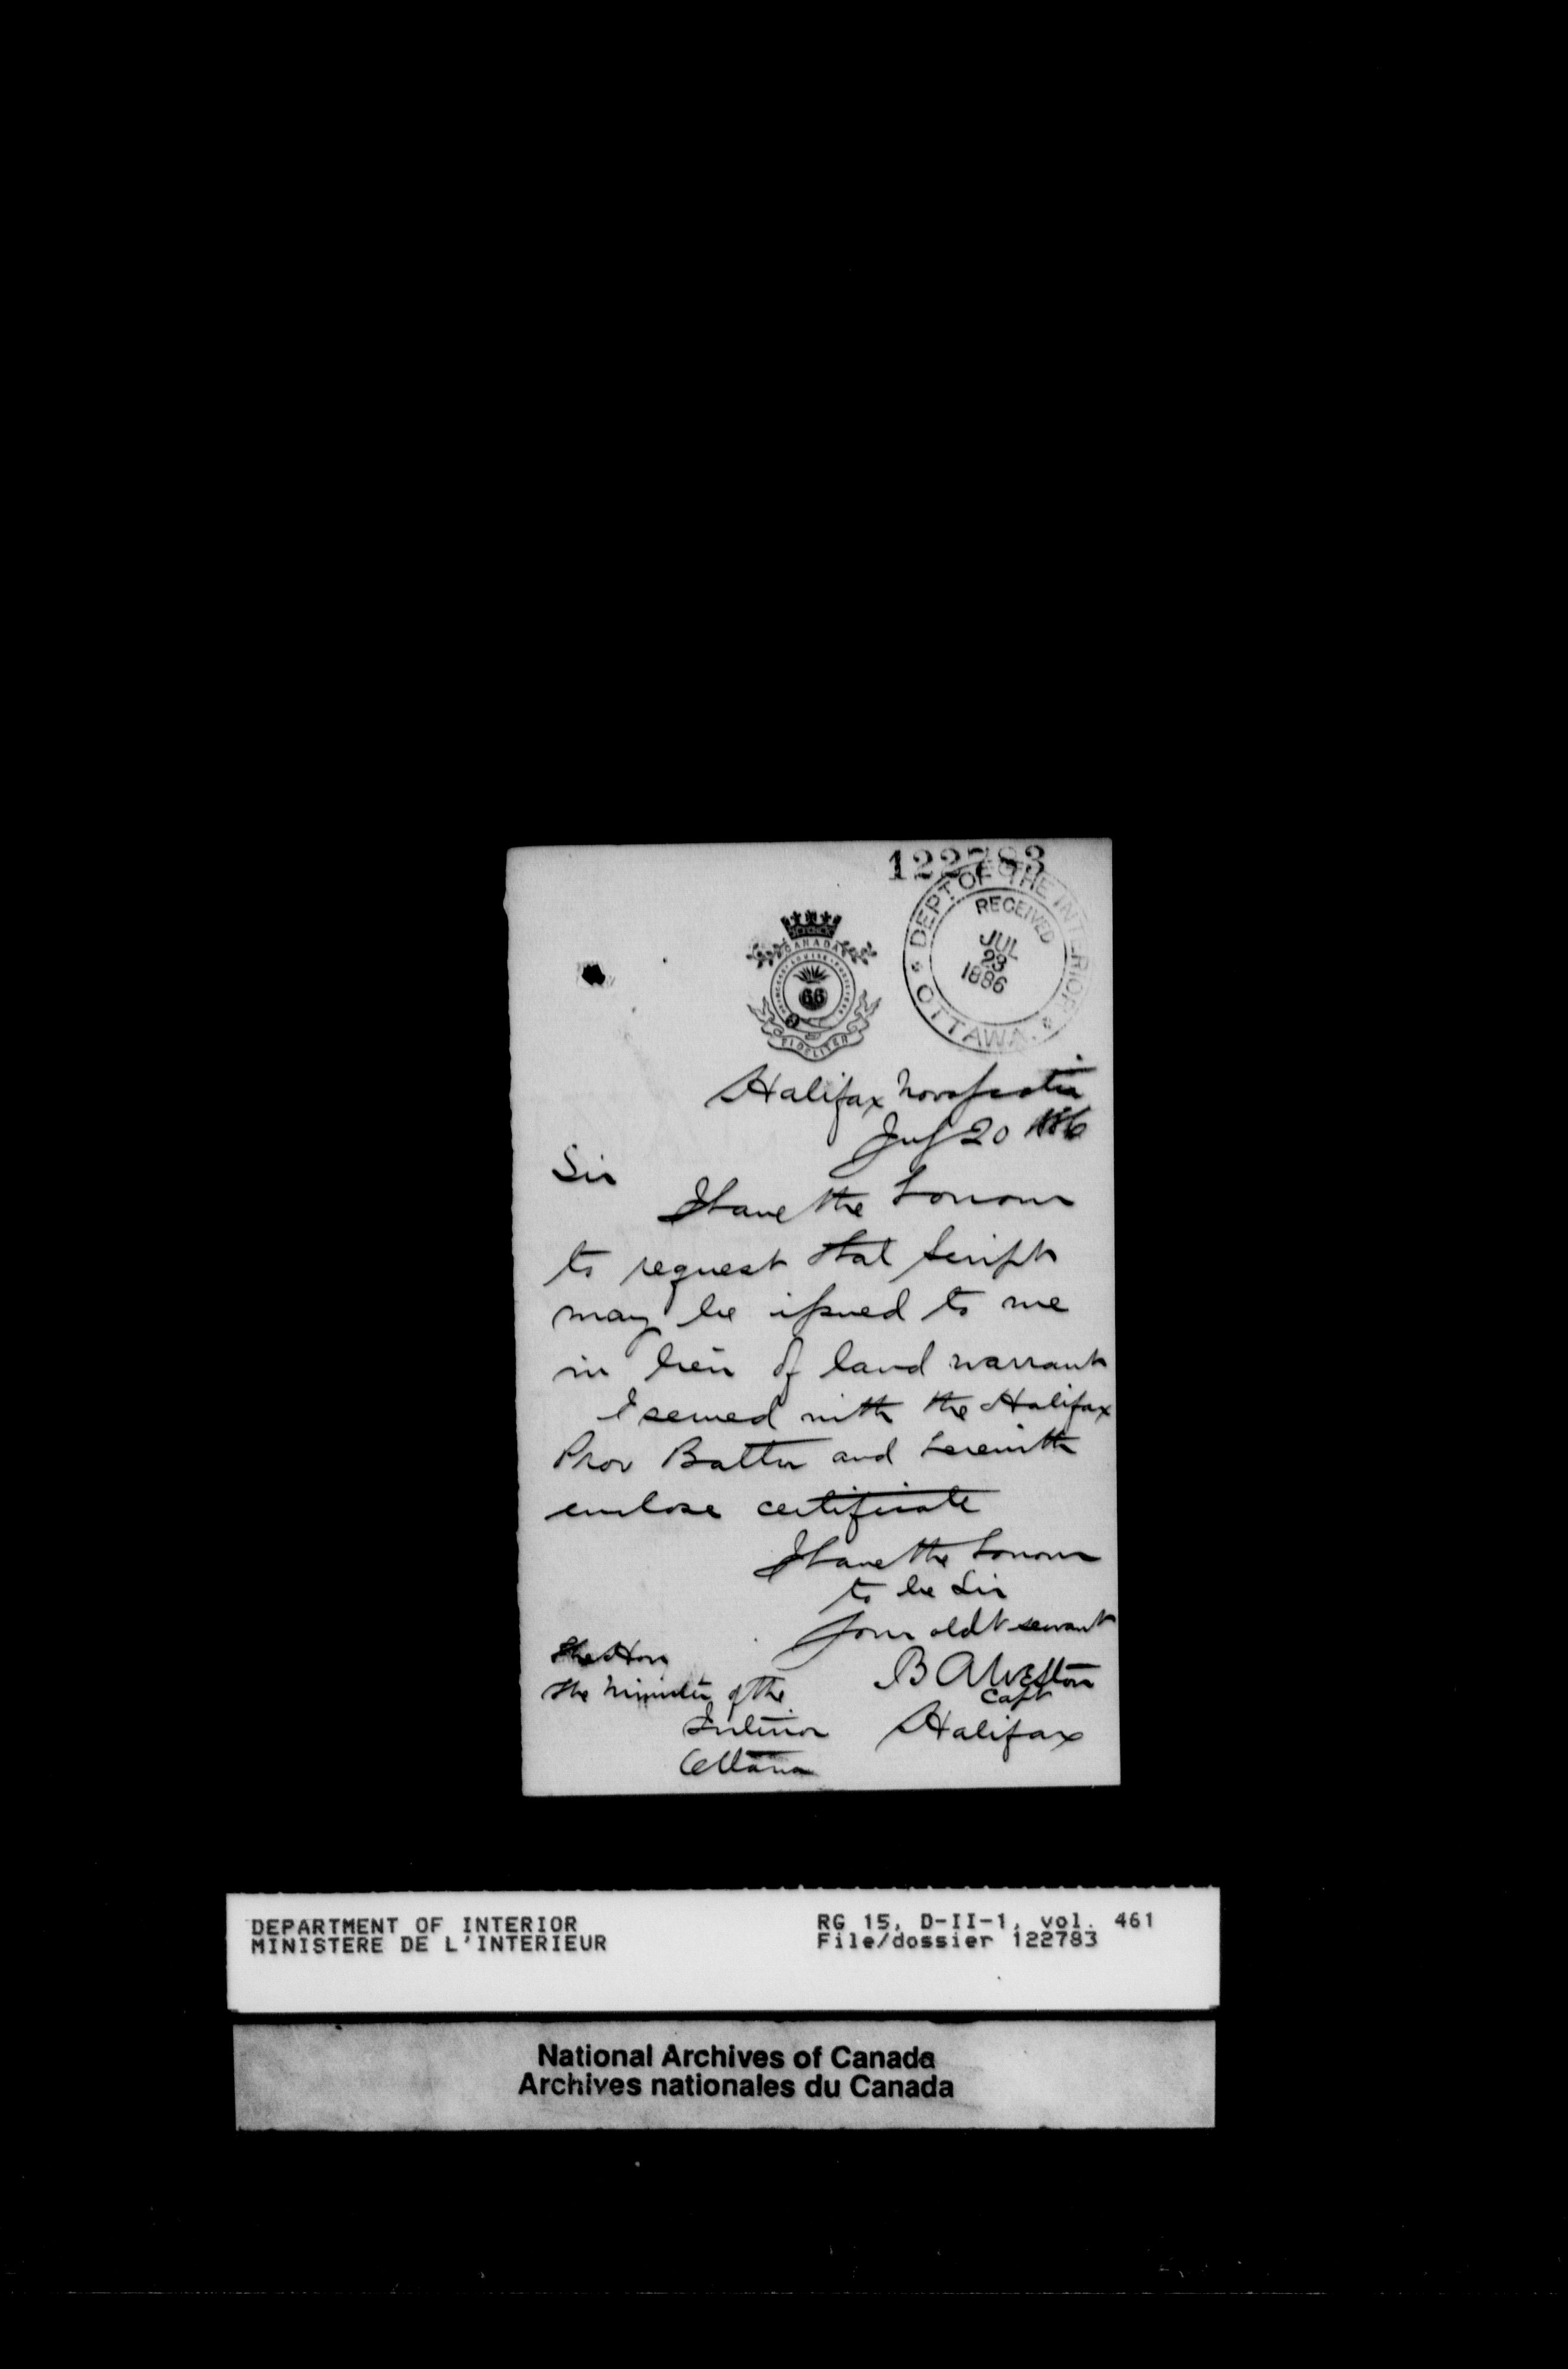 122783
DEPT. OF THE INTERIOR
RECEIVED
JUL
23
1886
OTTAWA.
CANADA
PRINCESS LOUISE FUSILIERS
66
FIDELITER
Halifax Nova Scotia
July 20 1886
Sir
I have the honour
to request that Script
may be issued to me
in lieu of land warrant
I served with the Halifax
Prov Battn and herewith
enclose certificate
I have the honour
to be Sir
Your obdt servant
B A Weston
Capt
Halifax
The Hon
The Minister of the
Interior
Ottawa
DEPARTMENT OF INTERIOR RG 15, D-II-1, vol. 461
MINISTERE DE L'INTERIEUR File/dossier 122783
National Archives of Canada
Archives nationales du Canada